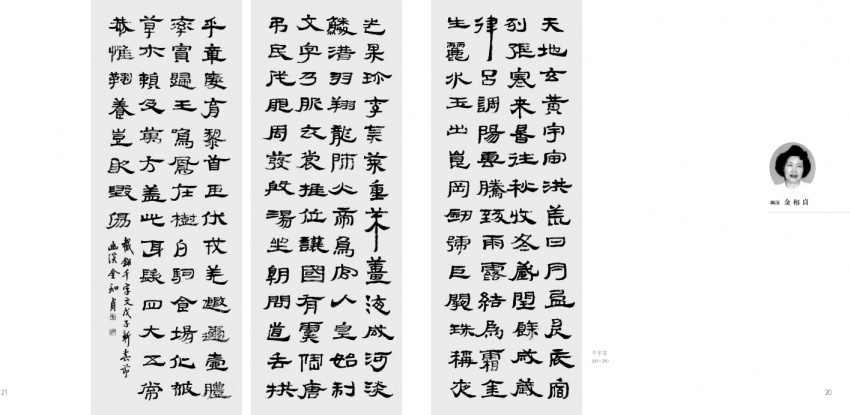 天地玄黃宇宙洪荒日月盈昃辰宿
列張寒來暑往秋收冬藏閏餘成歲
律呂調陽雲騰致雨露結爲霜金
生麗水玉出崑岡劍號巨闕珠稱夜
光果珍李柰菜重芥薑海鹹河淡
鱗潛羽翔龍師火帝鳥官人皇始制
文字乃服衣裳推位讓國有虞陶唐
弔民伐罪周發殷湯坐朝問道垂拱
平章愛育黎首臣伏戎羌遐邇壹體
率賓歸王鳴鳳在樹白駒食場化被
草木賴及萬方蓋此身髮四大五常
恭惟鞠養豈敢毀傷
截錄千字文戊子新春節
幽溪金相貞
幽溪 金相貞
千字文
21
20